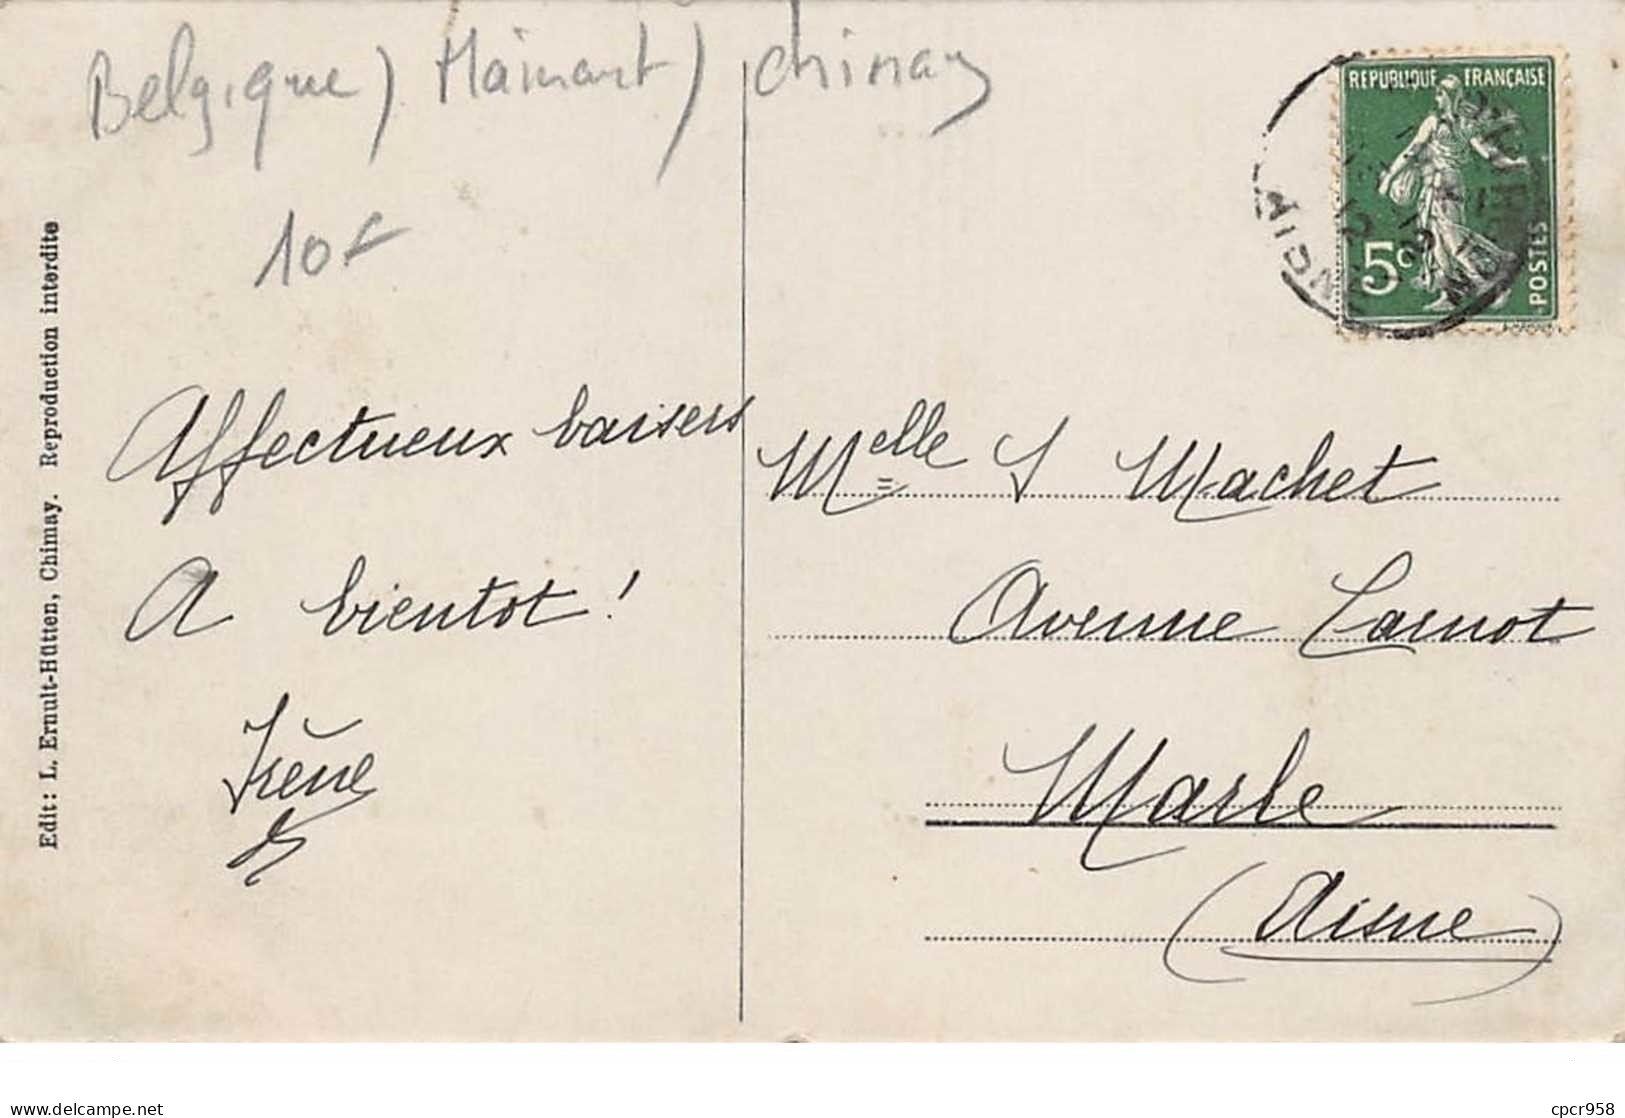 Belgique) Hainaut) Chimay
10f
REPUBLIQUE FRANÇAISE
5c
POSTES
Edit: L. Ernult-Hütten, Chimay. Reproduction interdite
Affectueux baisers
A bientot!
Irène
Melle S Machet
Avenue Carnot
Marle
(Aisne)
delcampe.net
cpcr958